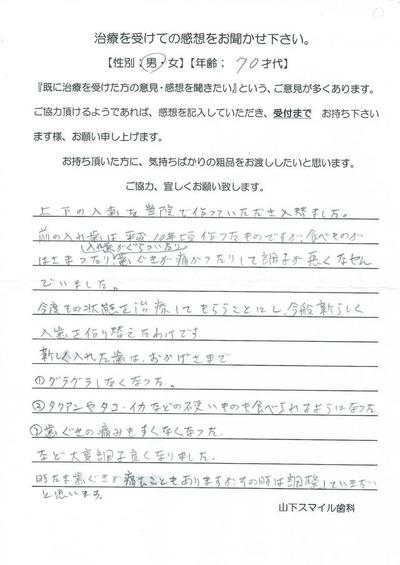 治療を受けての感想をお聞かせ下さい。
【性別：男・女】【年齢：70才代】
『既に治療を受けた方の意見・感想を聞きたい』という、ご意見が多くあります。
ご協力頂けるようであれば、感想を記入していただき、受付まで お持ち下さい
ます様、お願い申し上げます。
お持ち頂いた方に、気持ちばかりの粗品をお渡ししたいと思います。
ご協力、宜しくお願い致します。
上・下の入歯を当院で作っていただき入替ました。
前の入れ歯は平成10年頃作ったものですが、食べものが
入れ歯がぐらついたり
はさまったり歯ぐきが痛かったりして調子が悪くなやん
でいました。
今度その状態を治療してもらうことにし、今般新らしく
入歯を作り替えたわけです。
新しく入れた歯は、おかげさまで
①グラグラしなくなった。
②タクアンやタコ・イカなどの硬いものも食べられるようになった
③歯ぐきの痛みもすくなくなった。
など大変調子良くなりました。
時たま歯ぐきが痛むこともありますが、その時は調整していきたい
と思います。
山下スマイル歯科